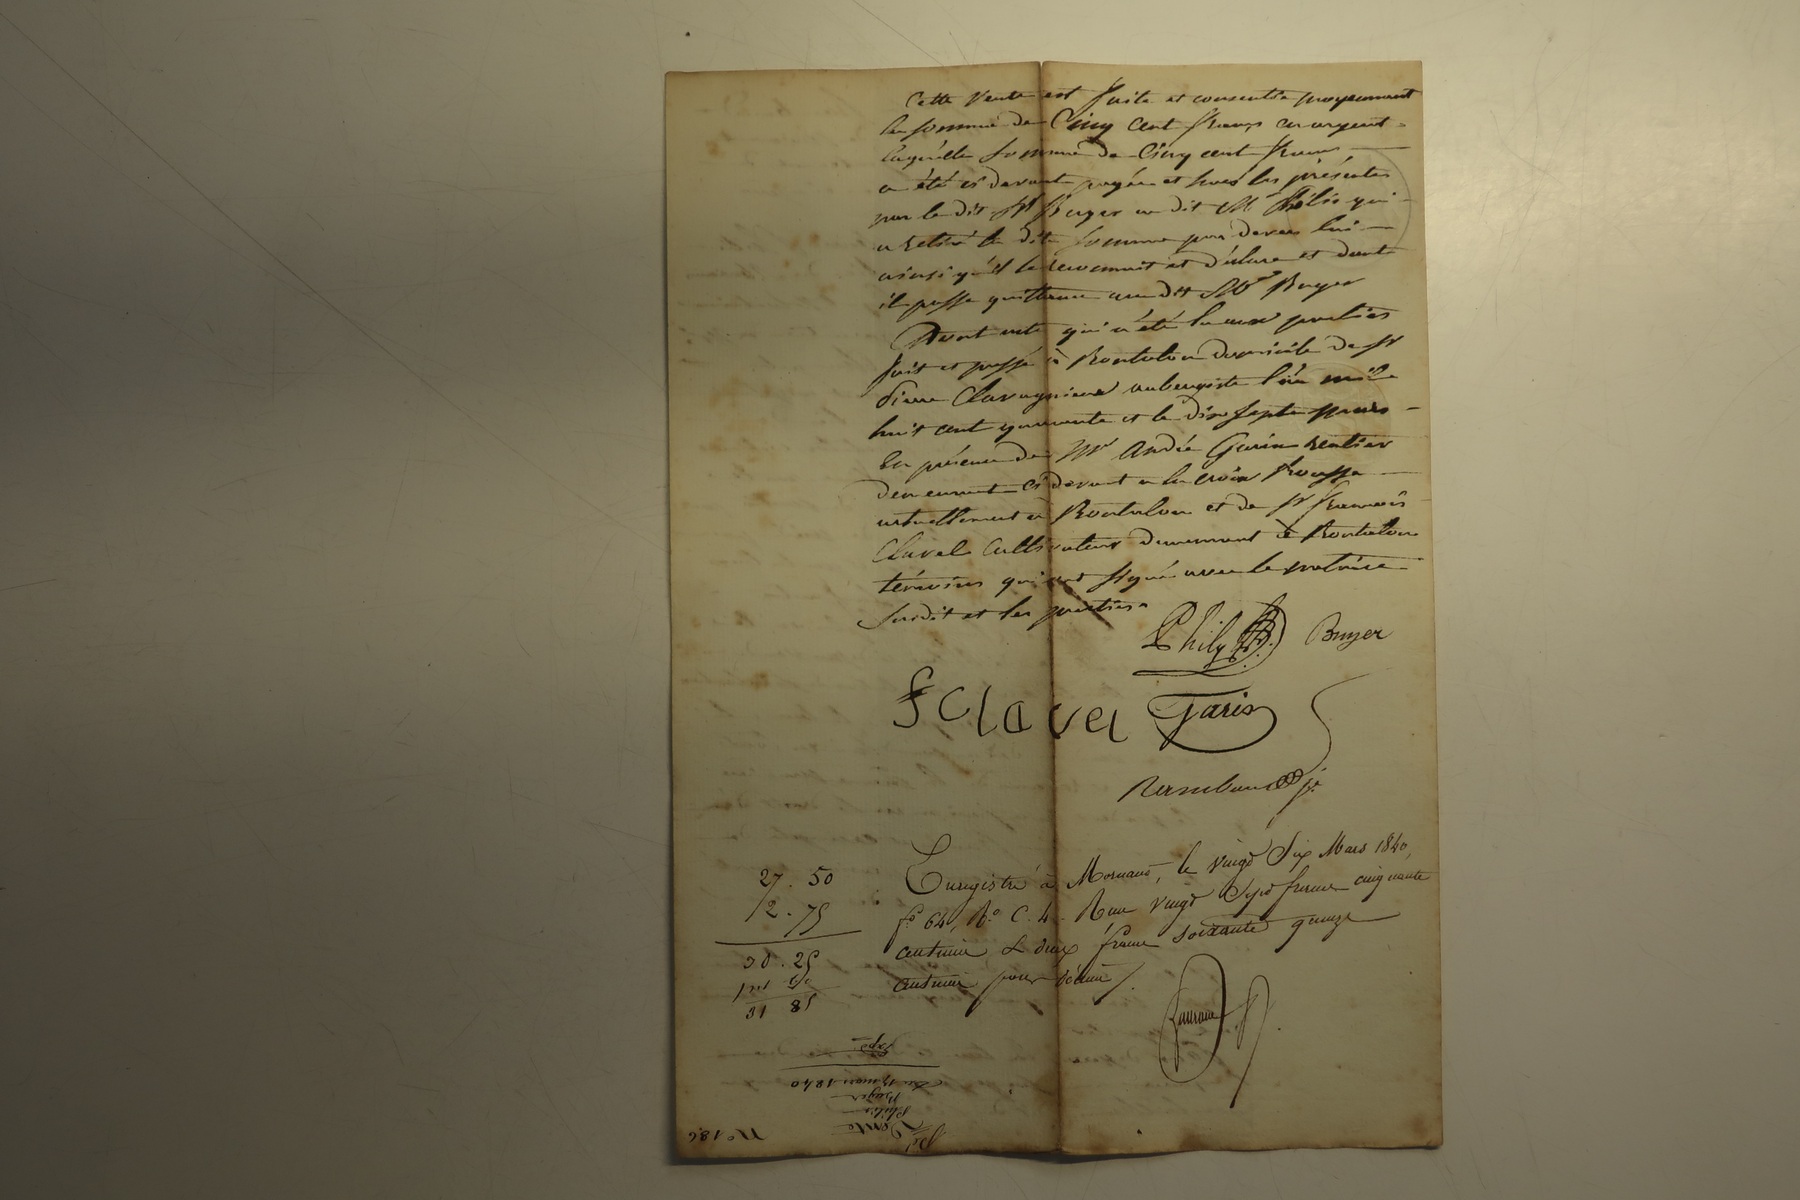 Cette Vente est faite et consentie moyennant
la somme de Cinq cent francs en argent
laquelle somme de Cinq cent francs
a été ci devant payée et hors les présentes
par le dit Sr Buyer au dit Mr Philis qui
a retiré la dite somme par devers lui
ainsi qu'il le reconnait et déclare et dont
il passe quittance au dit Sr Buyer
Dont acte qui a été lu aux parties
fait et passé à Rontalon domicile de Sr
Claragnier aubergiste l'an mil
huit cent quarante et le dix sept mars
En présence de Mr André Garin rentier
demeurant ci devant a la croix Rousse
actuellement à Rontalon et de Sr François
Clavel Cultivateur demeurant à Rontalon
témoins qui ont signé avec le notaire
Susdit et les parties
Philys Buyer
f Clavel Garin
Rambaud je
Enregistré à Mornant, le vingt Six Mars 1840,
fo 64, Ro C. 4. Reçu vingt Sept francs cinquante
centimes, & deux francs soixante quinze
centimes pour décime /.
27 . 50
2 . 75
30 . 25
31 85
Expé
Du 17 mars 1840
Buyer
Philis
Vente
No 186